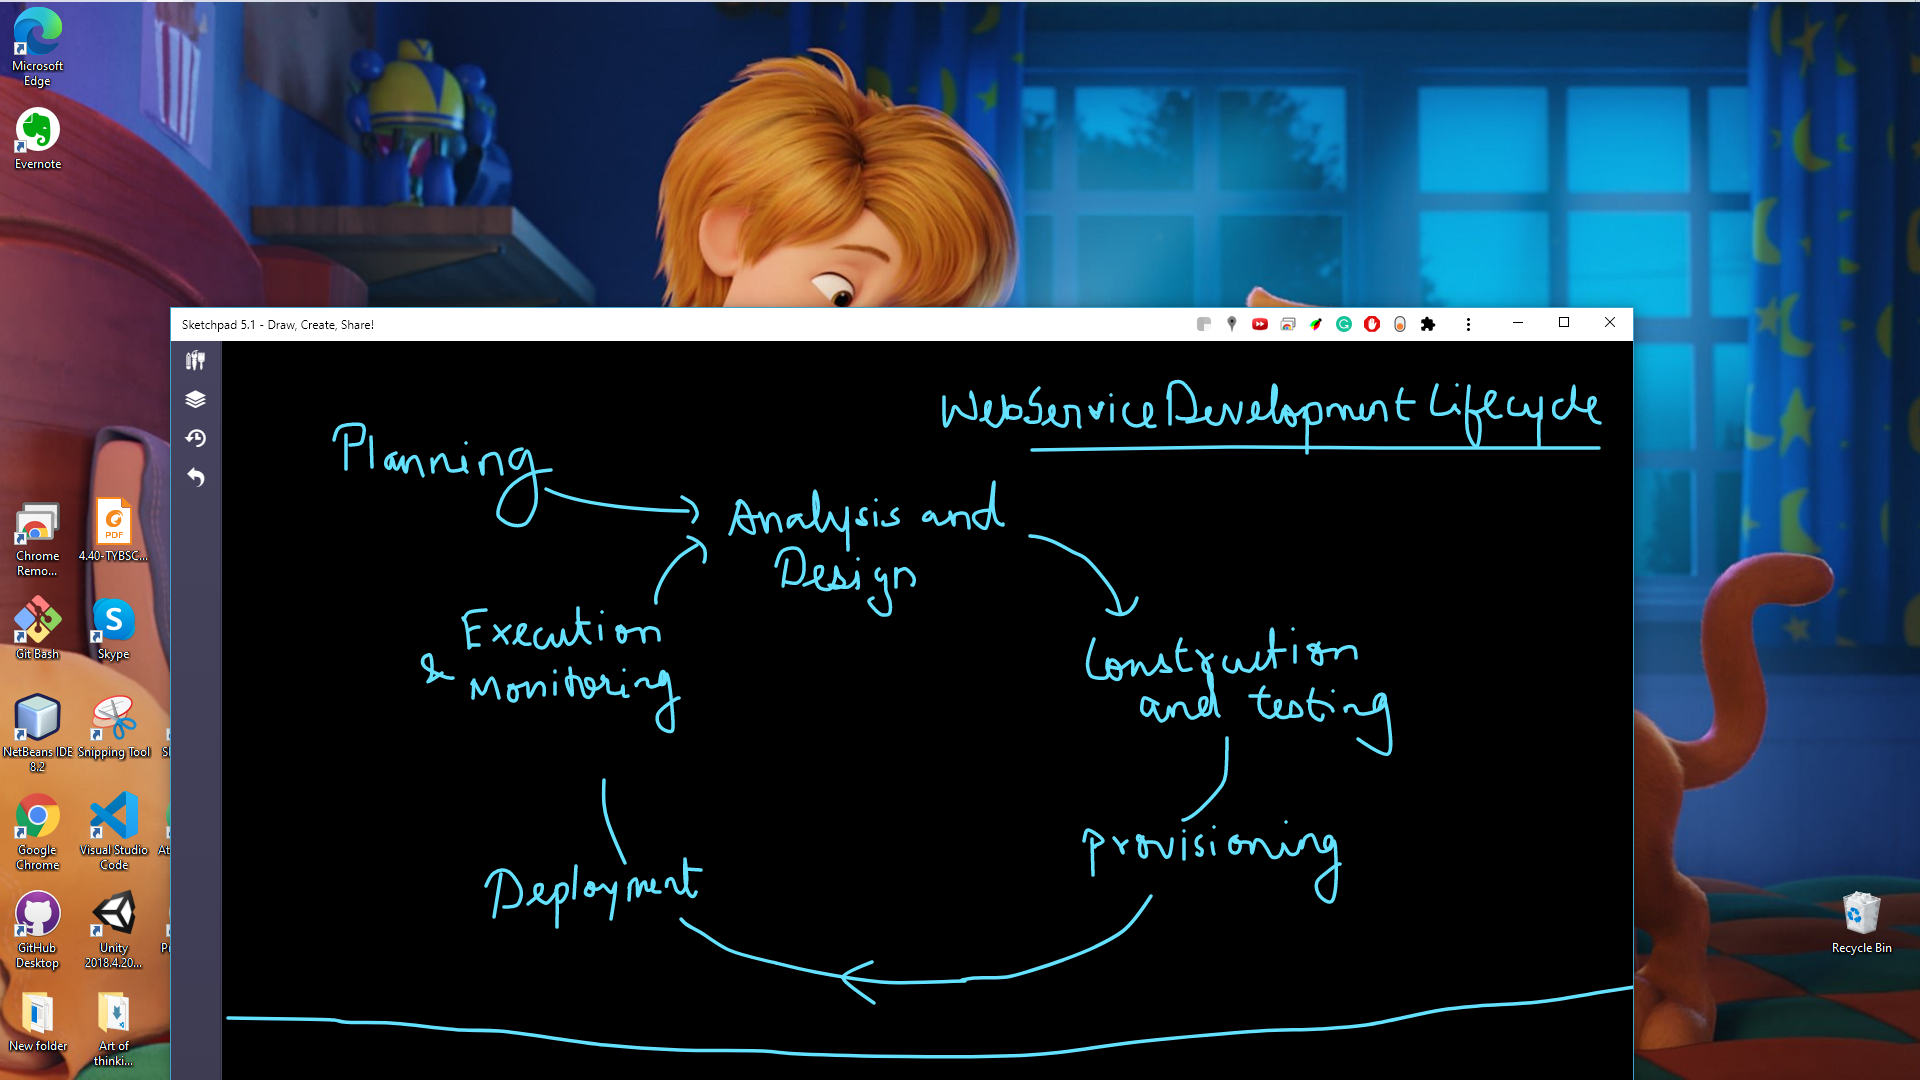 Microsoft
Edge
Evernote
Chrome
Remo...
PDF
4.40-TYBSC...
Git Bash
Skype
NetBeans IDE
8.2
Snipping Tool
Google
Chrome
Visual Studio
Code
GitHub
Desktop
Unity
2018.4.20...
New folder
Art of
thinki...
Recycle Bin
Sketchpad 5.1 - Draw, Create, Share!
WebService Development Lifecycle
Planning
Analysis and
Design
Execution
& Monitoring
Construction
and testing
Provisioning
Deployment